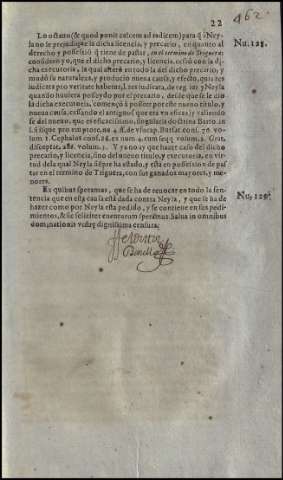 22 462
Lo octauo (& quod ponit calcem ad radicem) para q̃ à Ney
la no le prejudique la dicha licencia, y precario, en quanto al
derecho y possession q̃ tiene de pastar, en el termino de Trigueros:
considero yo, que el dicho precario, y licencia, cessò con la di
cha executoria, la qual alterò en todo la del dicho precario, y
mudò su naturaleza, y produzio nueua causa, y efecto, quia res
iudicata pro veritate habetur, l. res iudicata, de reg. iur. y Neyla
quando huuiera posseydo por el precario, desde que se le dio
la dicha executoria, començò à posseer por este nueuo titulo, y
nueua causa, cessando el antiguo que era ya oficaz, y valiendo
se del nueuo, que es eficacissimo, singularis doctrina Bart. in
l. sique pro emptore, nu. 4. ff. de vsucap. Bursat. cons. 76. volum
1. Cephalus cons. 26. ex num. 4. cum seqq. volum. 1. Grat.
disceptat. 288. volum. 2. Y ya no ay que hazer caso del dicho
precario, y licencia, sino del nueuo titulo, y executoria, en vir
tud de la qual Neyla siẽpre ha estado, y està en possessiõ de pas
tar en el termino de Trigueros, con sus ganados mayores, y me
nores.
Nu. 128.
Ex quibus speramus, que se ha de reuocar en todo la sen
tencia que en esta causa està dada contra Neyla, y que se ha de
hazer como por Neyla està pedido, y se contiene en sus pedi
mientos, & sic feliciter euenturum speramus. Salua in omnibus
dominationis vestræ dignissima censura.
Nu. 129.